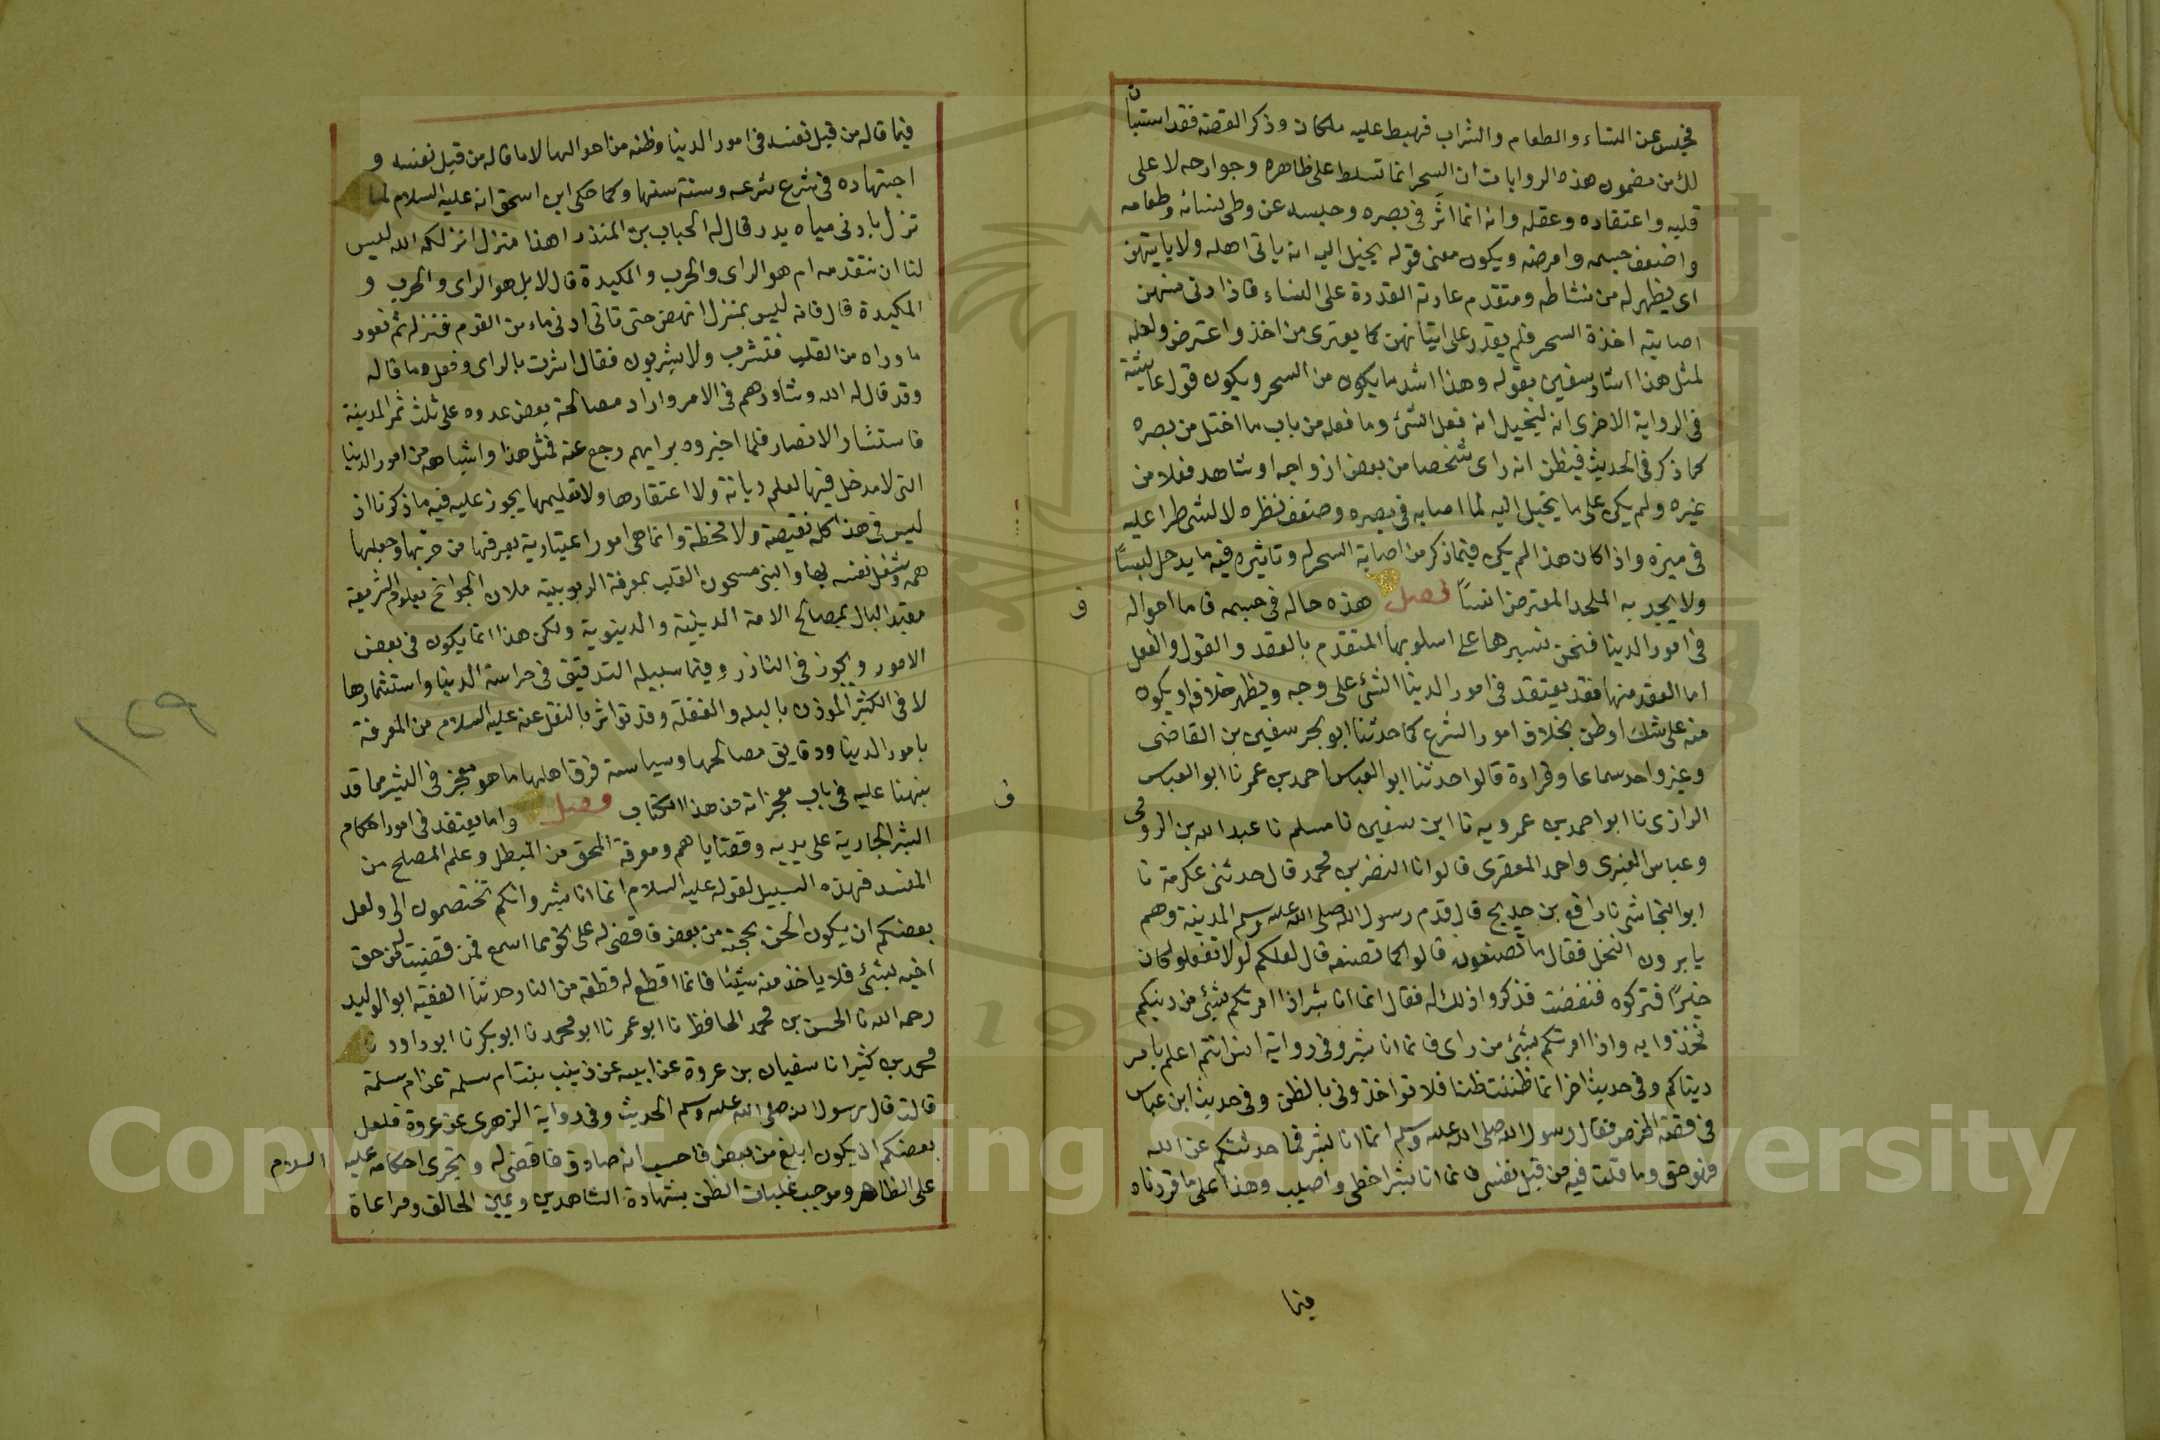 فحبس عن النساء والطعام والشراب فهبط عليه ملكان وذكر القصة فقد استبان
لك من مضمون هذه الروايات ان السحر انما تسلط على ظاهره وجوارحه لا على
قلبه واعتقاده وعقله وانه انما اثر في بصره وحبسه عن وطى نسائه وطعامه
واضعف جسمه وامرضه ويكون معنى قوله يخيل اليه انه ياتى اهله ولا ياتيهن
اى يظهر له من نشاطه ومتقدم عادته القدرة على النساء فاذا دنى منهن
اصابته اخذة السحر فلم يقدر على اتيانهن كما يعترى من اخذ واعترض ولعله
لمثل هذا اشار سفين بقوله وهذا اشد ما يكون من السحر ويكون قول عائشة
فى الرواية الاخرى انه ليخيل انه فعل الشئ وما فعله من باب ما اختل من بصره
كما ذكر فى الحديث فيظن انه راى شخصا من بعض ازواجه او شاهد فعلا من
غيره ولم يكن على ما يخيل اليه لما اصابه فى بصره وضعف نظره لا لشى طرا عليه
فى ميزه واذا كان هذا لم يكن فيما ذكر من اصابة السحر له وتاثيره فيه ما يدخل لبسًا
ولا يجد به الملحد المعترض انسًا فصل هذه حاله فى جسمه فاما احواله
فى امور الدنيا فنحن نسبرها على اسلوبها المتقدم بالعقد والقول والفعل
اما العقد منها فقد يعتقد فى امور الدنيا الشئ على وجه ويظهر خلافه او يكون
منه على شك او ظن بخلاف امور الشرع كما حدثنا ابو بحر سفين بن القاضى
وغير واحد سماعا وقراءة قالوا حدثنا ابو العباس احمد بن عمر نا ابو العباس
الرازى نا ابو احمد بن عمرويه نا ابن سفين نا مسلم نا عبد الله بن الرومى
وعباس العنبرى واحمد المعقرى قالوا نا النضر بن محمد قال حدثنى عكرمة نا
ابو النجاشى نا رافع بن خديج قال قدم رسول الله صلى الله عليه وسلم المدينة وهم
يابرون النخل فقال ما تصنعون قالوا كنا نصنعه قال لعلكم لو لا تفعلو كان
خيرًا فتركوه فنفضت فذكروا ذلك له فقال انما انا بشر اذا امرتكم بشئ من دينكم
فخذوا به واذا امرتكم بشئ من راى فانما انا بشر وفى رواية انس انتم اعلم بامر
دنياكم وفى حديث اخر انما ظننت ظنا فلا تواخذونى بالظن وفى حديث ابن عباس
فى قصة الخرص فقال رسول الله صلى الله عليه وسلم انما انا بشر فما حدثتكم عن الله
فهو حق وما قلت فيه من قبل نفسى فانما انا بشر اخطى واصيب وهذا على ما قررناه
ف
فيما
فيما قاله من قبل نفسه فى امور الدنيا وظنه من احوالها لا ما قاله من قبل نفسه و
اجتهاده فى شرع شرعه وسنة سنها وكما حكى ابن اسحق انه عليه السلام لما
نزل بادنى مياه بدر قال له الحباب بن المنذر اهذا منزل انزلكه الله ليس
لنا ان نتقدمه ام هو الراى والحرب والمكيدة قال لا بل هو الراى والحرب و
المكيدة قال فانه ليس بمنزل انهض حتى تاتى ادنى ماء من القوم فننزله ثم نعور
ما وراه من القلب فنشرب ولا يشربون فقال اشرت بالراى وفعل ما قاله
وقد قال له الله وشاورهم فى الامر واراد مصالحة بعض عدوه على ثلث ثمر المدينة
فاستشار الانصار فلما اخبروه برايهم رجع عنه فمثل هذا واشباهه من امور الدنيا
التى لا مدخل فيها لعلم ديانة ولا اعتقادها ولا تعليمها يجوز عليه فيه ما ذكرنا اذ
ليس فى هذا كله نقيصة ولا محطة وانما هى امور اعتيادية يعرفها من جربها وجعلها
همه وشغل نفسه بها والنبى مسحون القلب بمعرفة الربوبية ملان الجوانح بعلوم الشريعة
مقيد البال بمصالح الامة الدينية والدنيوية ولكن هذا انما يكون فى بعض
الامور ويجوز فى النادر وفيما سبيله التدقيق فى حراسة الدنيا واستثمارها
لا فى الكثير الموذن بالبله والغفلة وقد تواتر بالنقل عنه عليه السلام من المعرفة
بامور الدنيا ودقايق مصالحها وسياسة فرق اهلها ما هو معجز فى البشر مما قد
نبهنا عليه فى باب معجزاته من هذا الكتاب فصل واما يعتقد فى امور احكام
البشر الجارية على يديه وقضاياهم ومعرفة المحق من المبطل وعلم المصلح من
المفسد فهذه السبيل لقوله عليه السلام انما انا بشر وانكم تختصمون الى ولعل
بعضكم ان يكون الحن بحجته من بعض فاقضى له على نحو مما اسمع فمن قضيت له من حق
اخيه بشئ فلا ياخذ منه شيئا فانما اقطع له قطعة من النار حدثنا الفقيه ابو الوليد
رحمه الله نا الحسن بن محمد الحافظ نا ابو عمر نا ابو محمد نا ابو بكر نا ابو داود نا
محمد بن كثير انا سفيان بن عروة عن ابيه عن زينب بنت ام سلمة عن ام سلمة
قالت قال رسول الله صلى الله عليه وسلم الحديث وفى رواية الزهرى عن عروة فلعل
بعضكم ان يكون ابلغ من بعض فاحسب انه صادق فاقضى له ويجرى احكامه عليه السلام
على الظاهر وموجب غلبات الظن بشهادة الشاهدين ويمين الحالف ومراعاة
ف
١٤٩
Copyright © King Saud University
195